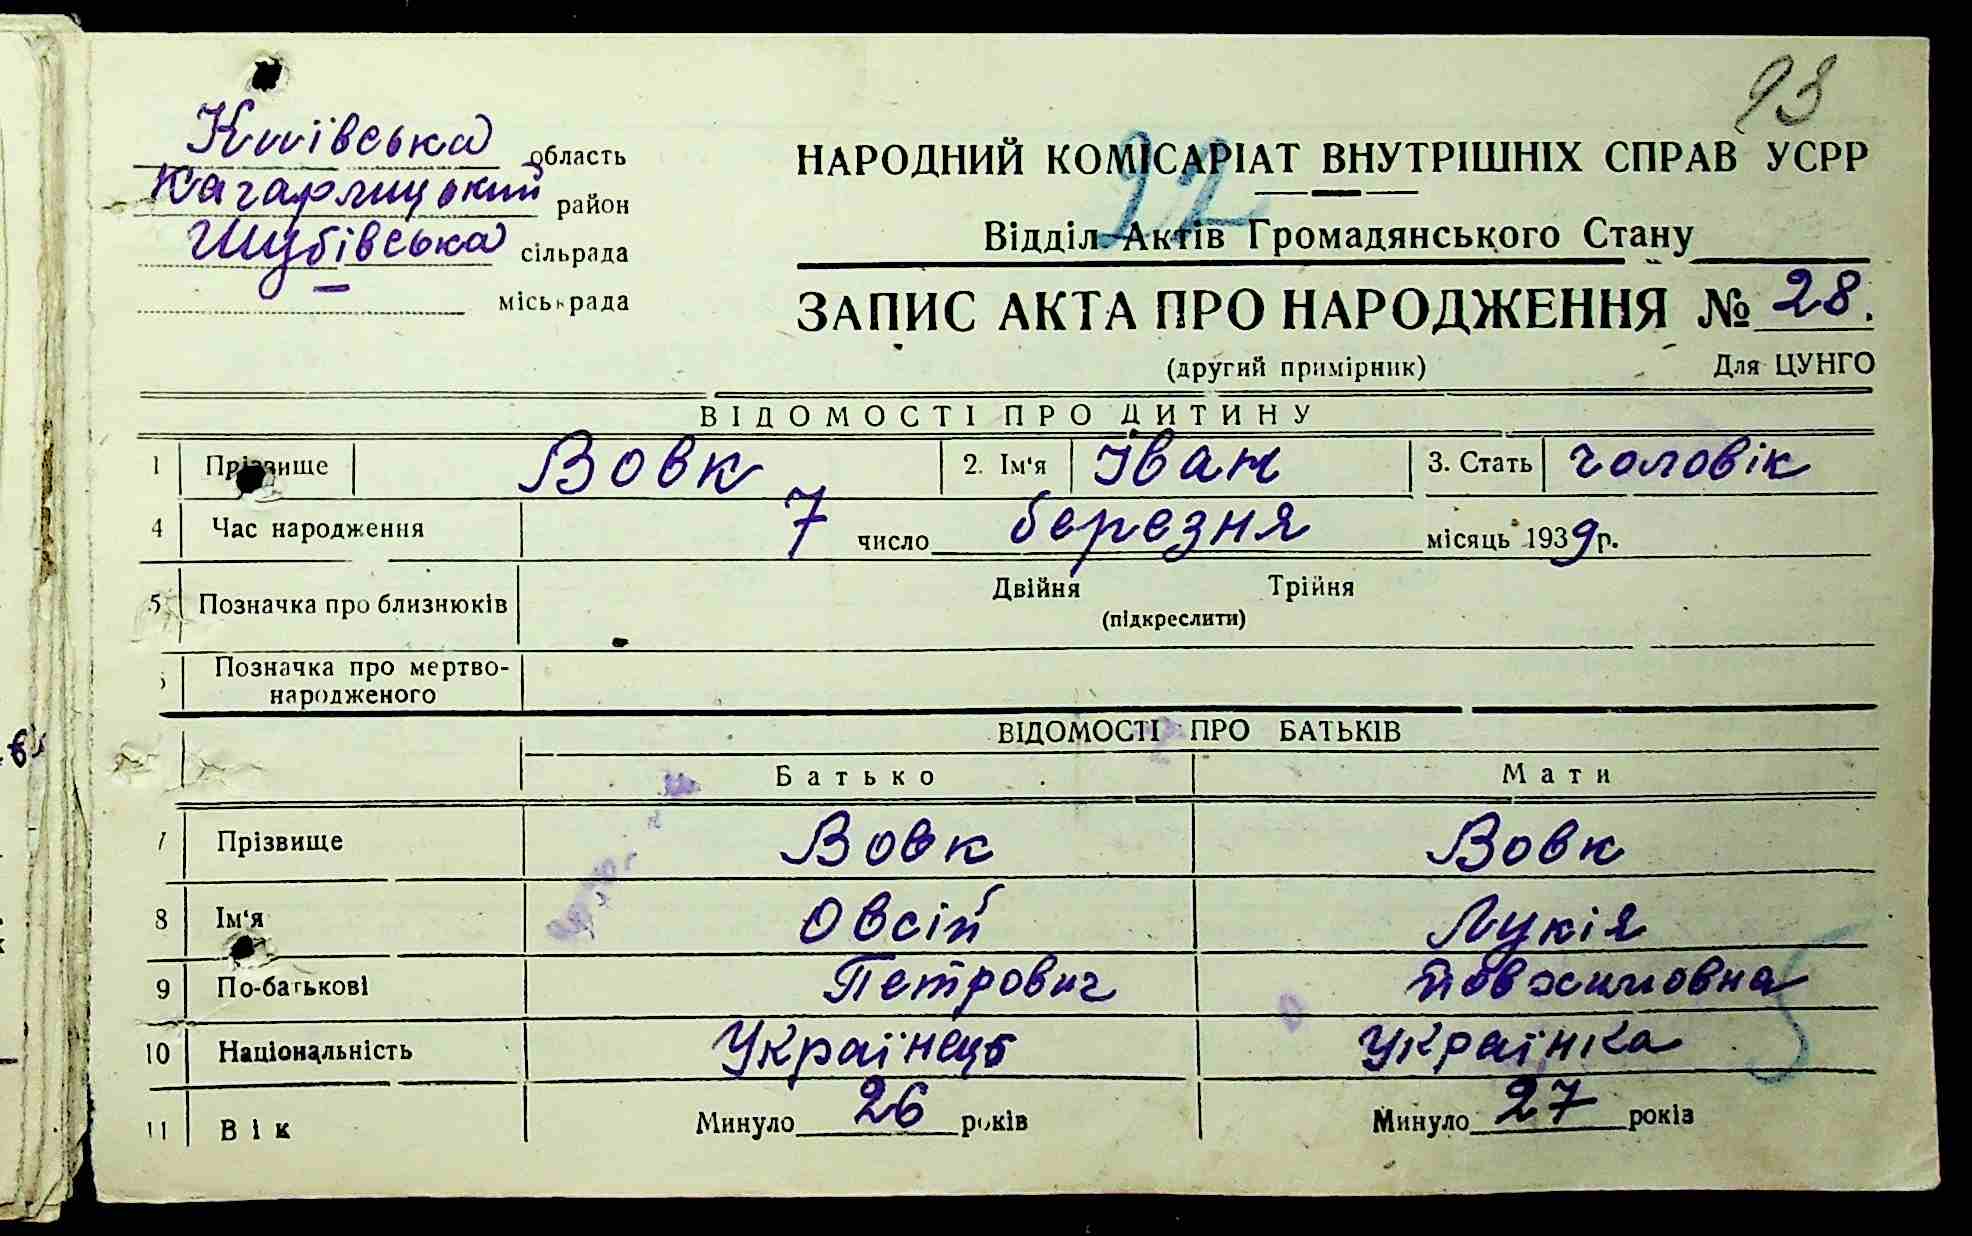 93
Київська область
Кагарлицький район
Шубівська сільрада
міськрада
НАРОДНИЙ КОМІСАРІАТ ВНУТРІШНІХ СПРАВ УСРР
22
Відділ Актів Громадянського Стану
ЗАПИС АКТА ПРО НАРОДЖЕННЯ № 28.
(другий примірник) Для ЦУНГО
ВІДОМОСТІ ПРО ДИТИНУ
1 Прізвище Вовк 2. Ім'я Іван 3. Стать чоловік
4 Час народження 7 число березня місяць 1939 р.
5 Позначка про близнюків Двійня Трійня
(підкреслити)
Позначка про мертво-
народженого
ВІДОМОСТІ ПРО БАТЬКІВ
Батько Мати
7 Прізвище Вовк Вовк
8 Ім'я Овсій Лукія
9 По-батькові Петрович
10 Національність Українець Українка
11 Вік Минуло 26 років Минуло 27 років